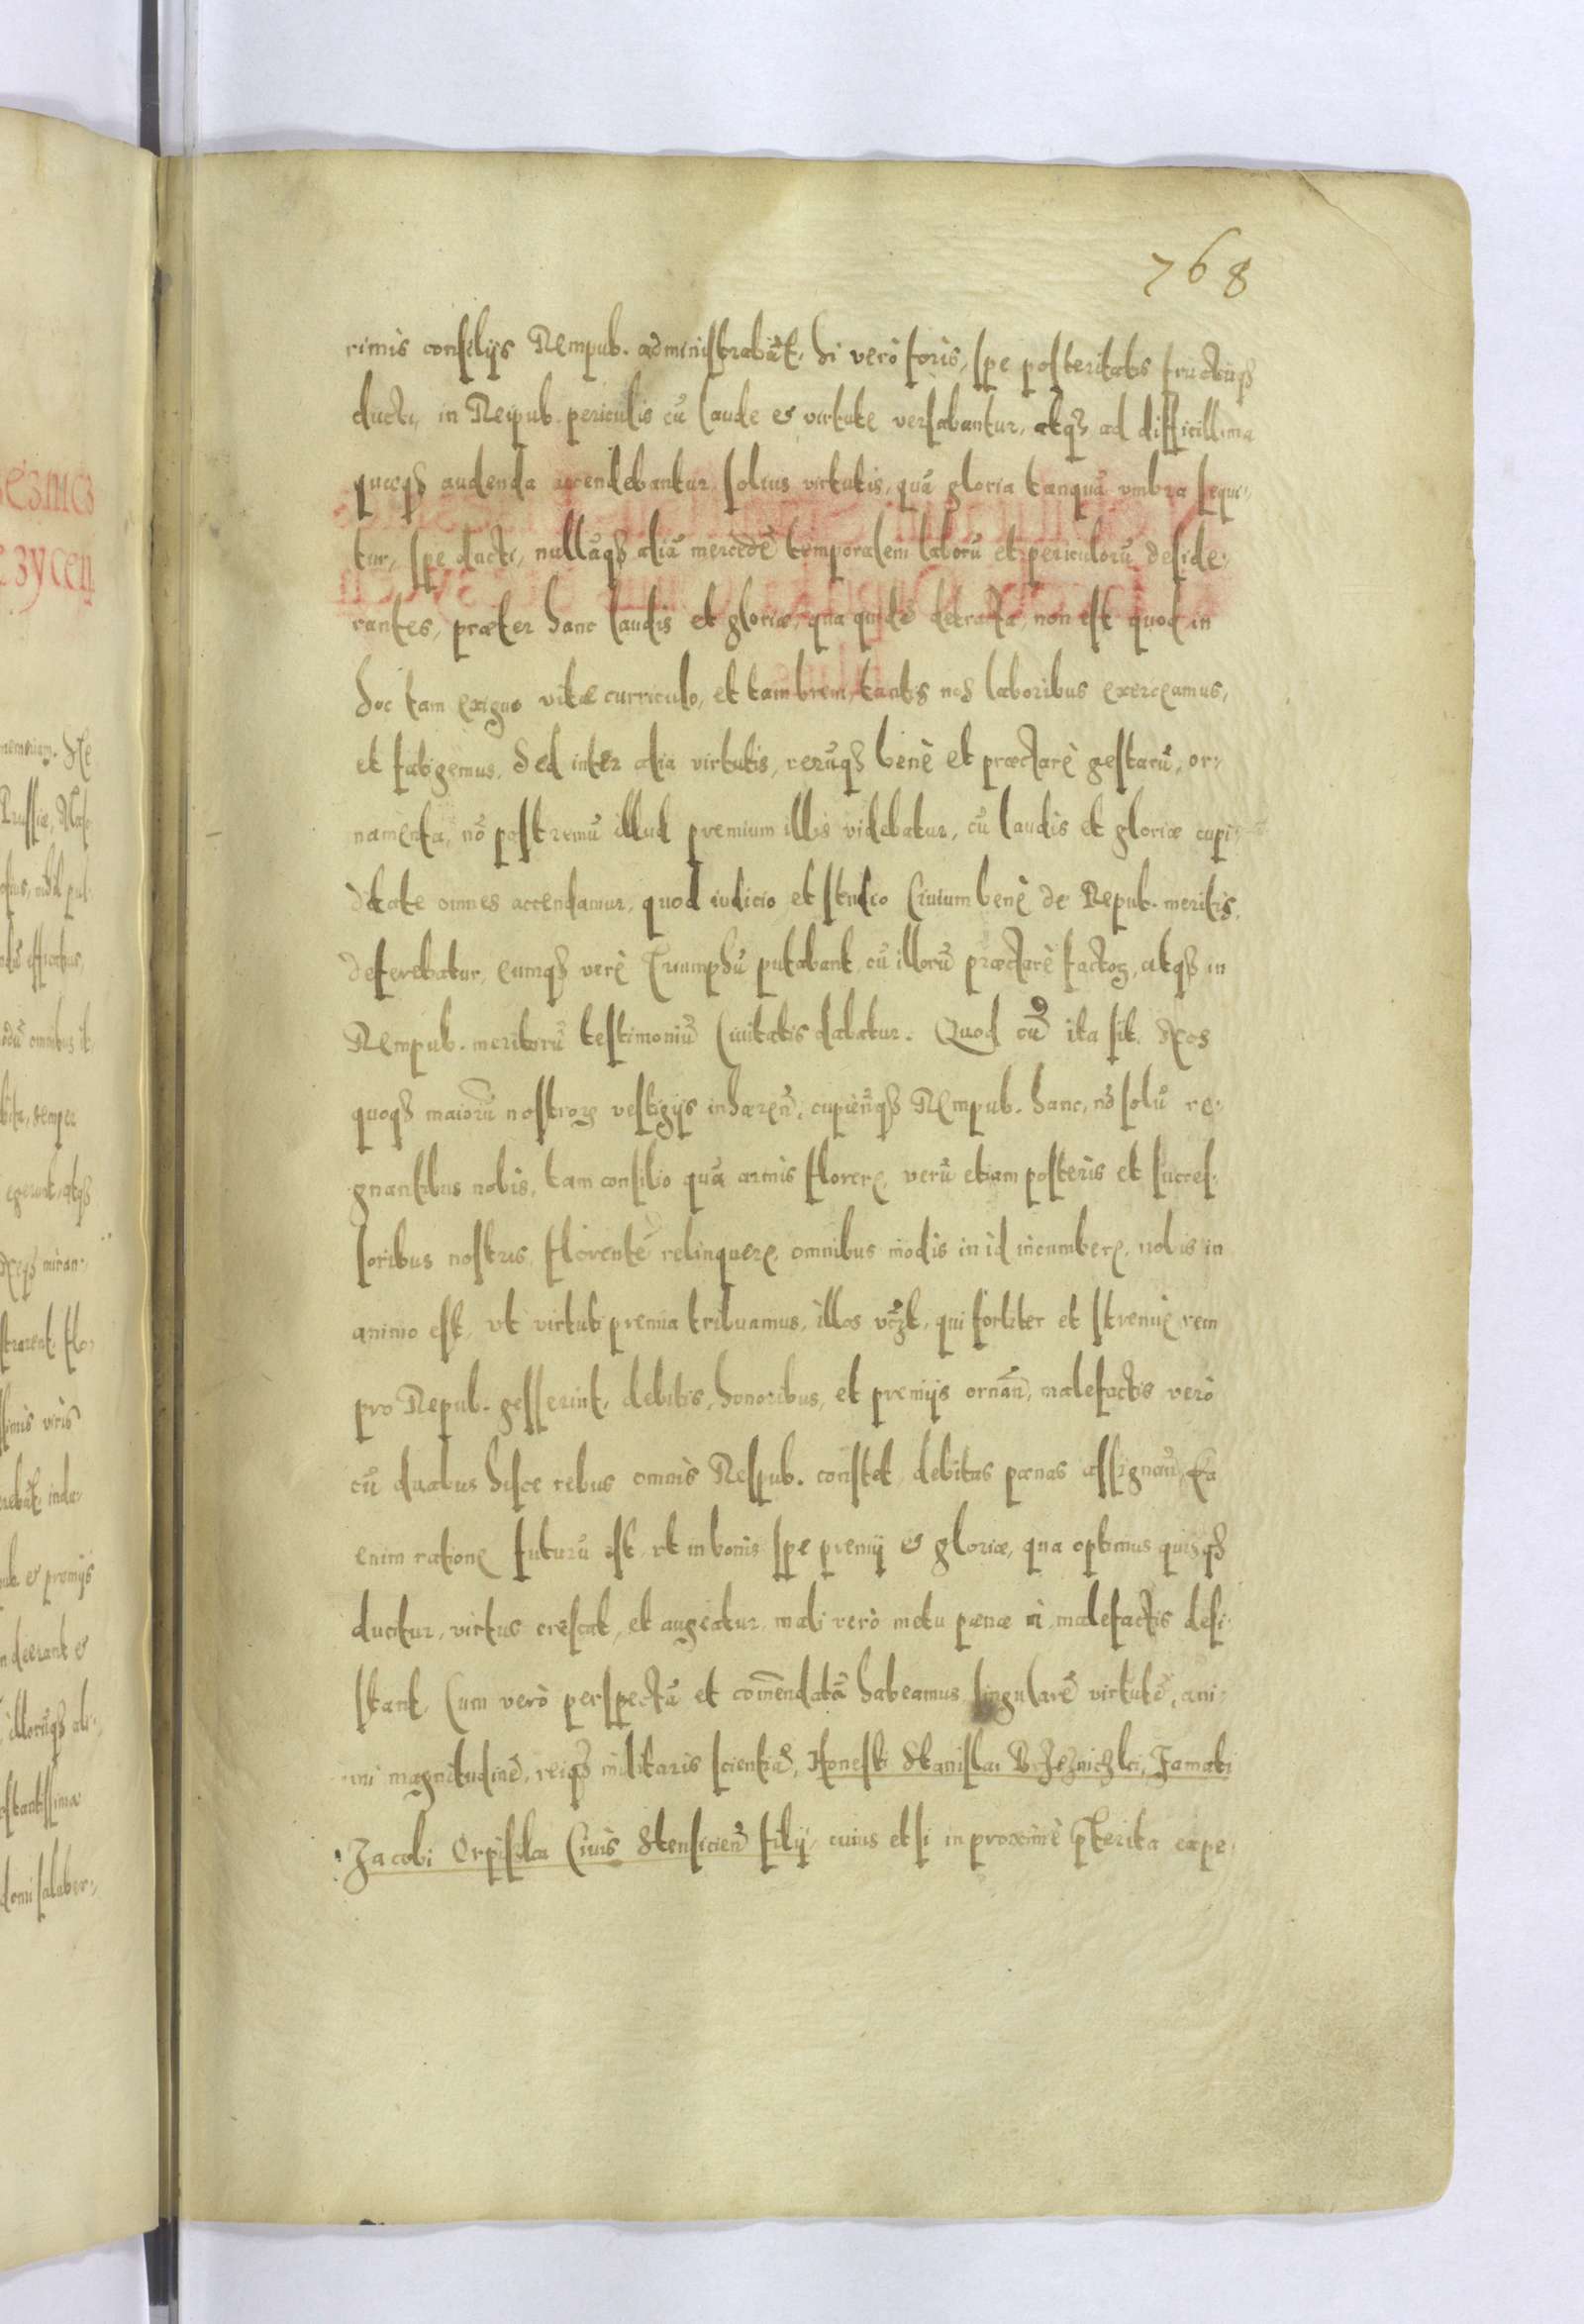 768
rimis consilijs Rempub. administrabāt, hi verò foris, spe posteritatis fructūq3
ducti, in Reipub. periculis cū laude et virtute versabantur, atq3 ad difficillima
quæq3 audenda accendebantur, solius virtutis, quā gloria tanquā vmbra sequi-
tur, spe ducti, nullāq3 aliā mercedē temporalem laborū et periculorū deside-
rantes, præter hanc laudis et gloriæ, qua quidē detracta, non est quod in
hoc tam exiguo vitæ curriculo, et tam breui, tantis nos laboribus exerceamus,
et fatigemus. Sed inter alia virtutis, rerūq3 benè et præclarè gestarū, or-
namenta, nō postremū illud premium illis videbatur, cū laudis et gloriæ cupi-
ditate omnes accendamur, quod iudicio et studio Ciuium benè de Repub. meritis,
deferebatur, eumq3 verè Triumphū putabant, cū illorū præclarè factoꝝ, atq3 in
Rempub. meritorū testimoniū Ciuitatis dabatur. Quod cū ita sit, Nos
quoq3 maiorū nostroꝝ vestigijs inhæren̄, cupien̄q3 Rempub. hanc, nō solū re-
gnantibus nobis, tam consilio quā armis florere, verū etiam posteris et succes-
soribus nostris florentē relinquere, omnibus modis in id incumbere, nobis in
animo est, vt virtuti premia tribuamus, illos qui fortiter et strenuè rem
pro Repub. gesserint, debitis, honoribus, et premijs ornan̄, malefactis verò
cū duabus hisce rebus omnis Respub. constet debitas pœnas assignan̄, Ea
enim ratione futurū est, vt in bonis spe premij et gloriæ, qua optimus quisq3
ducitur, virtus crescat, et augeatur, mali verò metu pœnæ à malefactis desi-
stant. Cum verò perspectā et com̄endatā habeamus singularē virtutē, ani-
mi magnitudinē, reiq3 militaris scientiā, Honesti Stanislai Brzeznichki, Famati
Jacobi Orpiszka Ciuis Stensicien̄ filij, cuius etsi in proximè pterita expe-